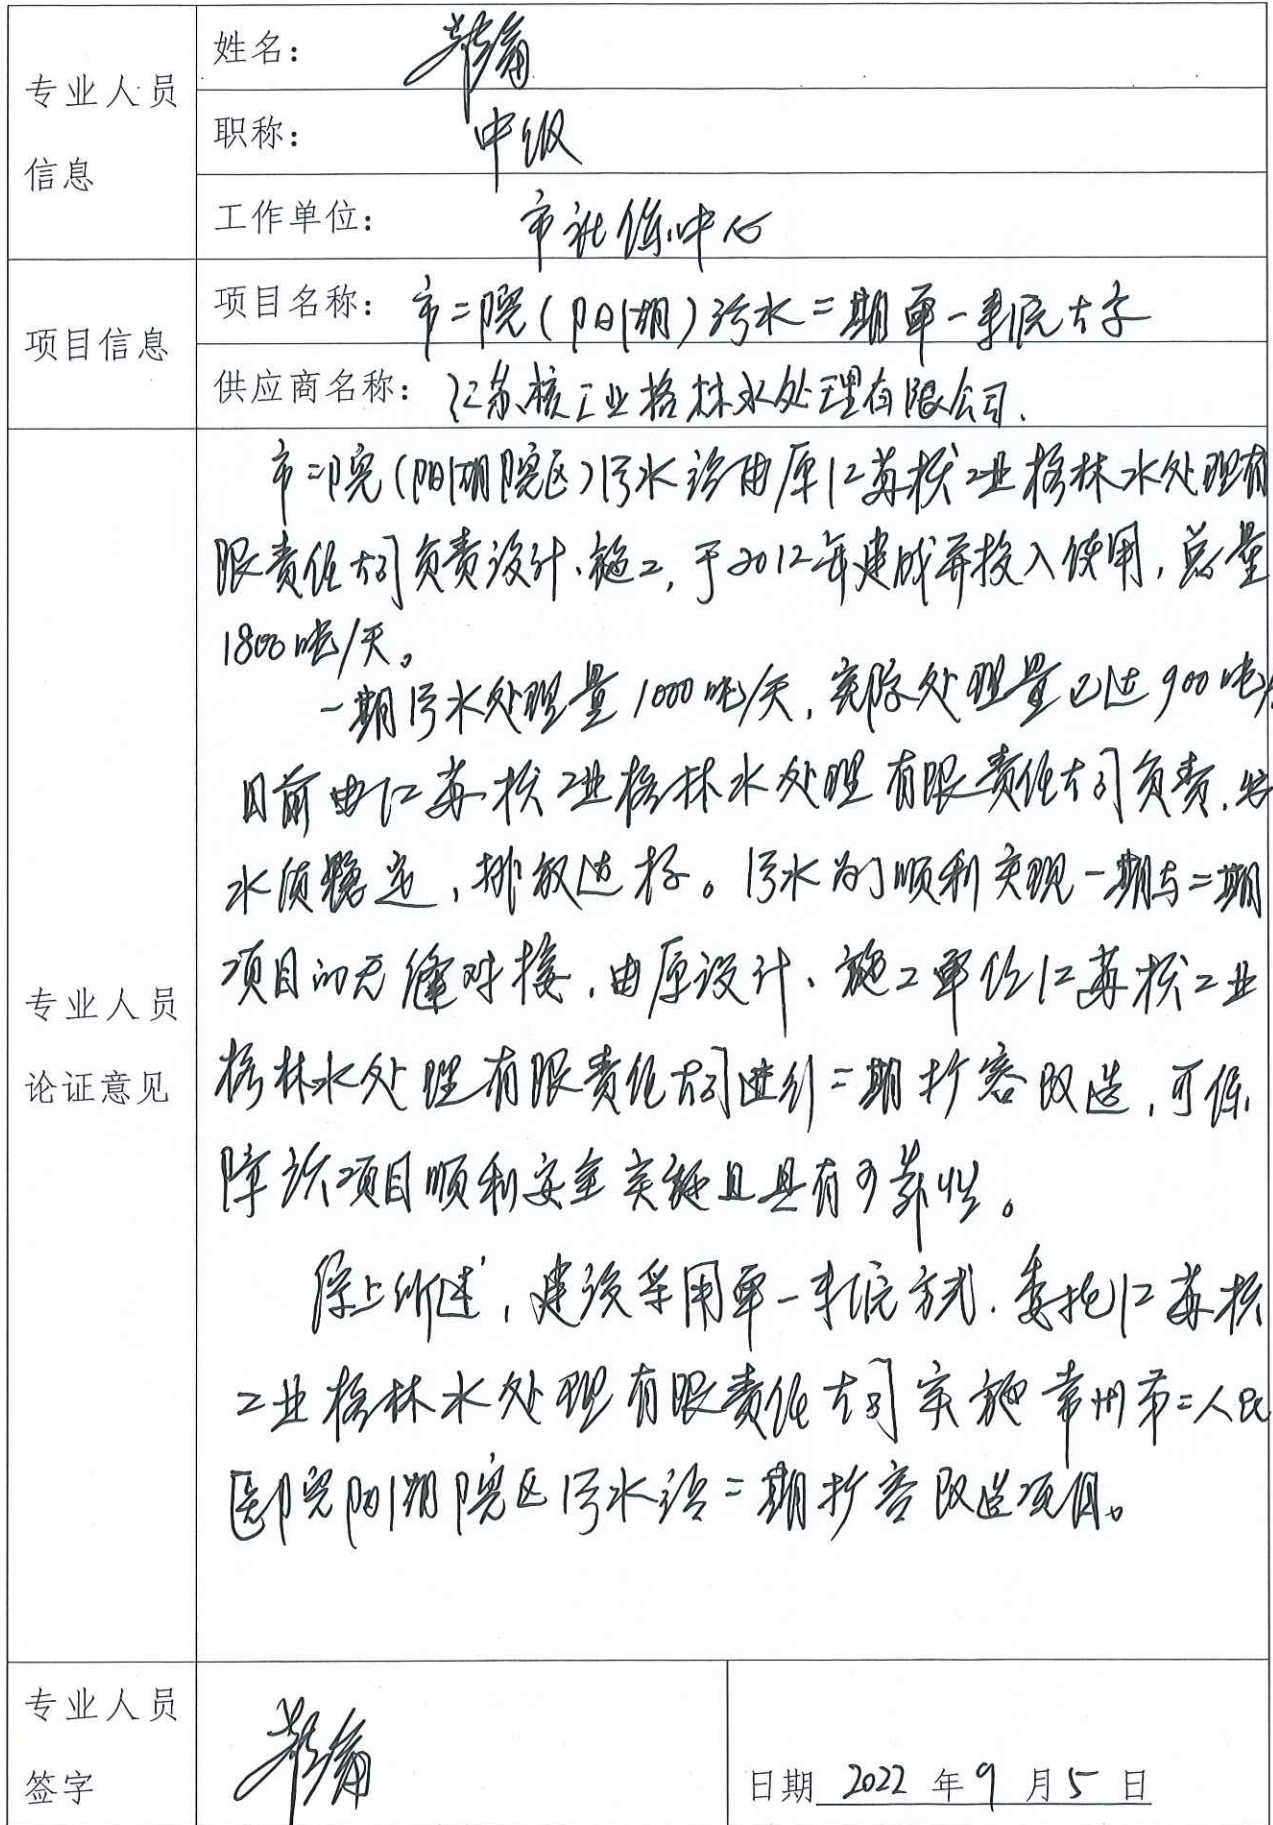 专业人员
信息
姓名：
职称： 中级
工作单位： 市社保中心
项目信息
项目名称： 市二院（阳湖）污水二期单一来源方式
供应商名称： 江苏核工业格林水处理有限公司.
专业人员
论证意见
市二院（阳湖院区）污水站由原江苏核工业格林水处理有
限责任公司负责设计、施工，于2012年建成并投入使用，总量
1800吨/天。
一期污水处理量1000吨/天，实际处理量已达900吨/
目前由江苏核工业格林水处理有限责任公司负责，
水质稳定，排放达标。污水为了顺利实现一期与二期
项目的无缝对接，由原设计、施工单位江苏核工业
格林水处理有限责任公司进行二期扩容改造，可保
障该项目顺利安全实施且具有可靠性。
综上所述，建议采用单一来源方式，委托江苏核
工业格林水处理有限责任公司实施常州市二人民
医院阳湖院区污水站二期扩容改造项目。
专业人员
签字
日期 2022 年 9 月 5 日